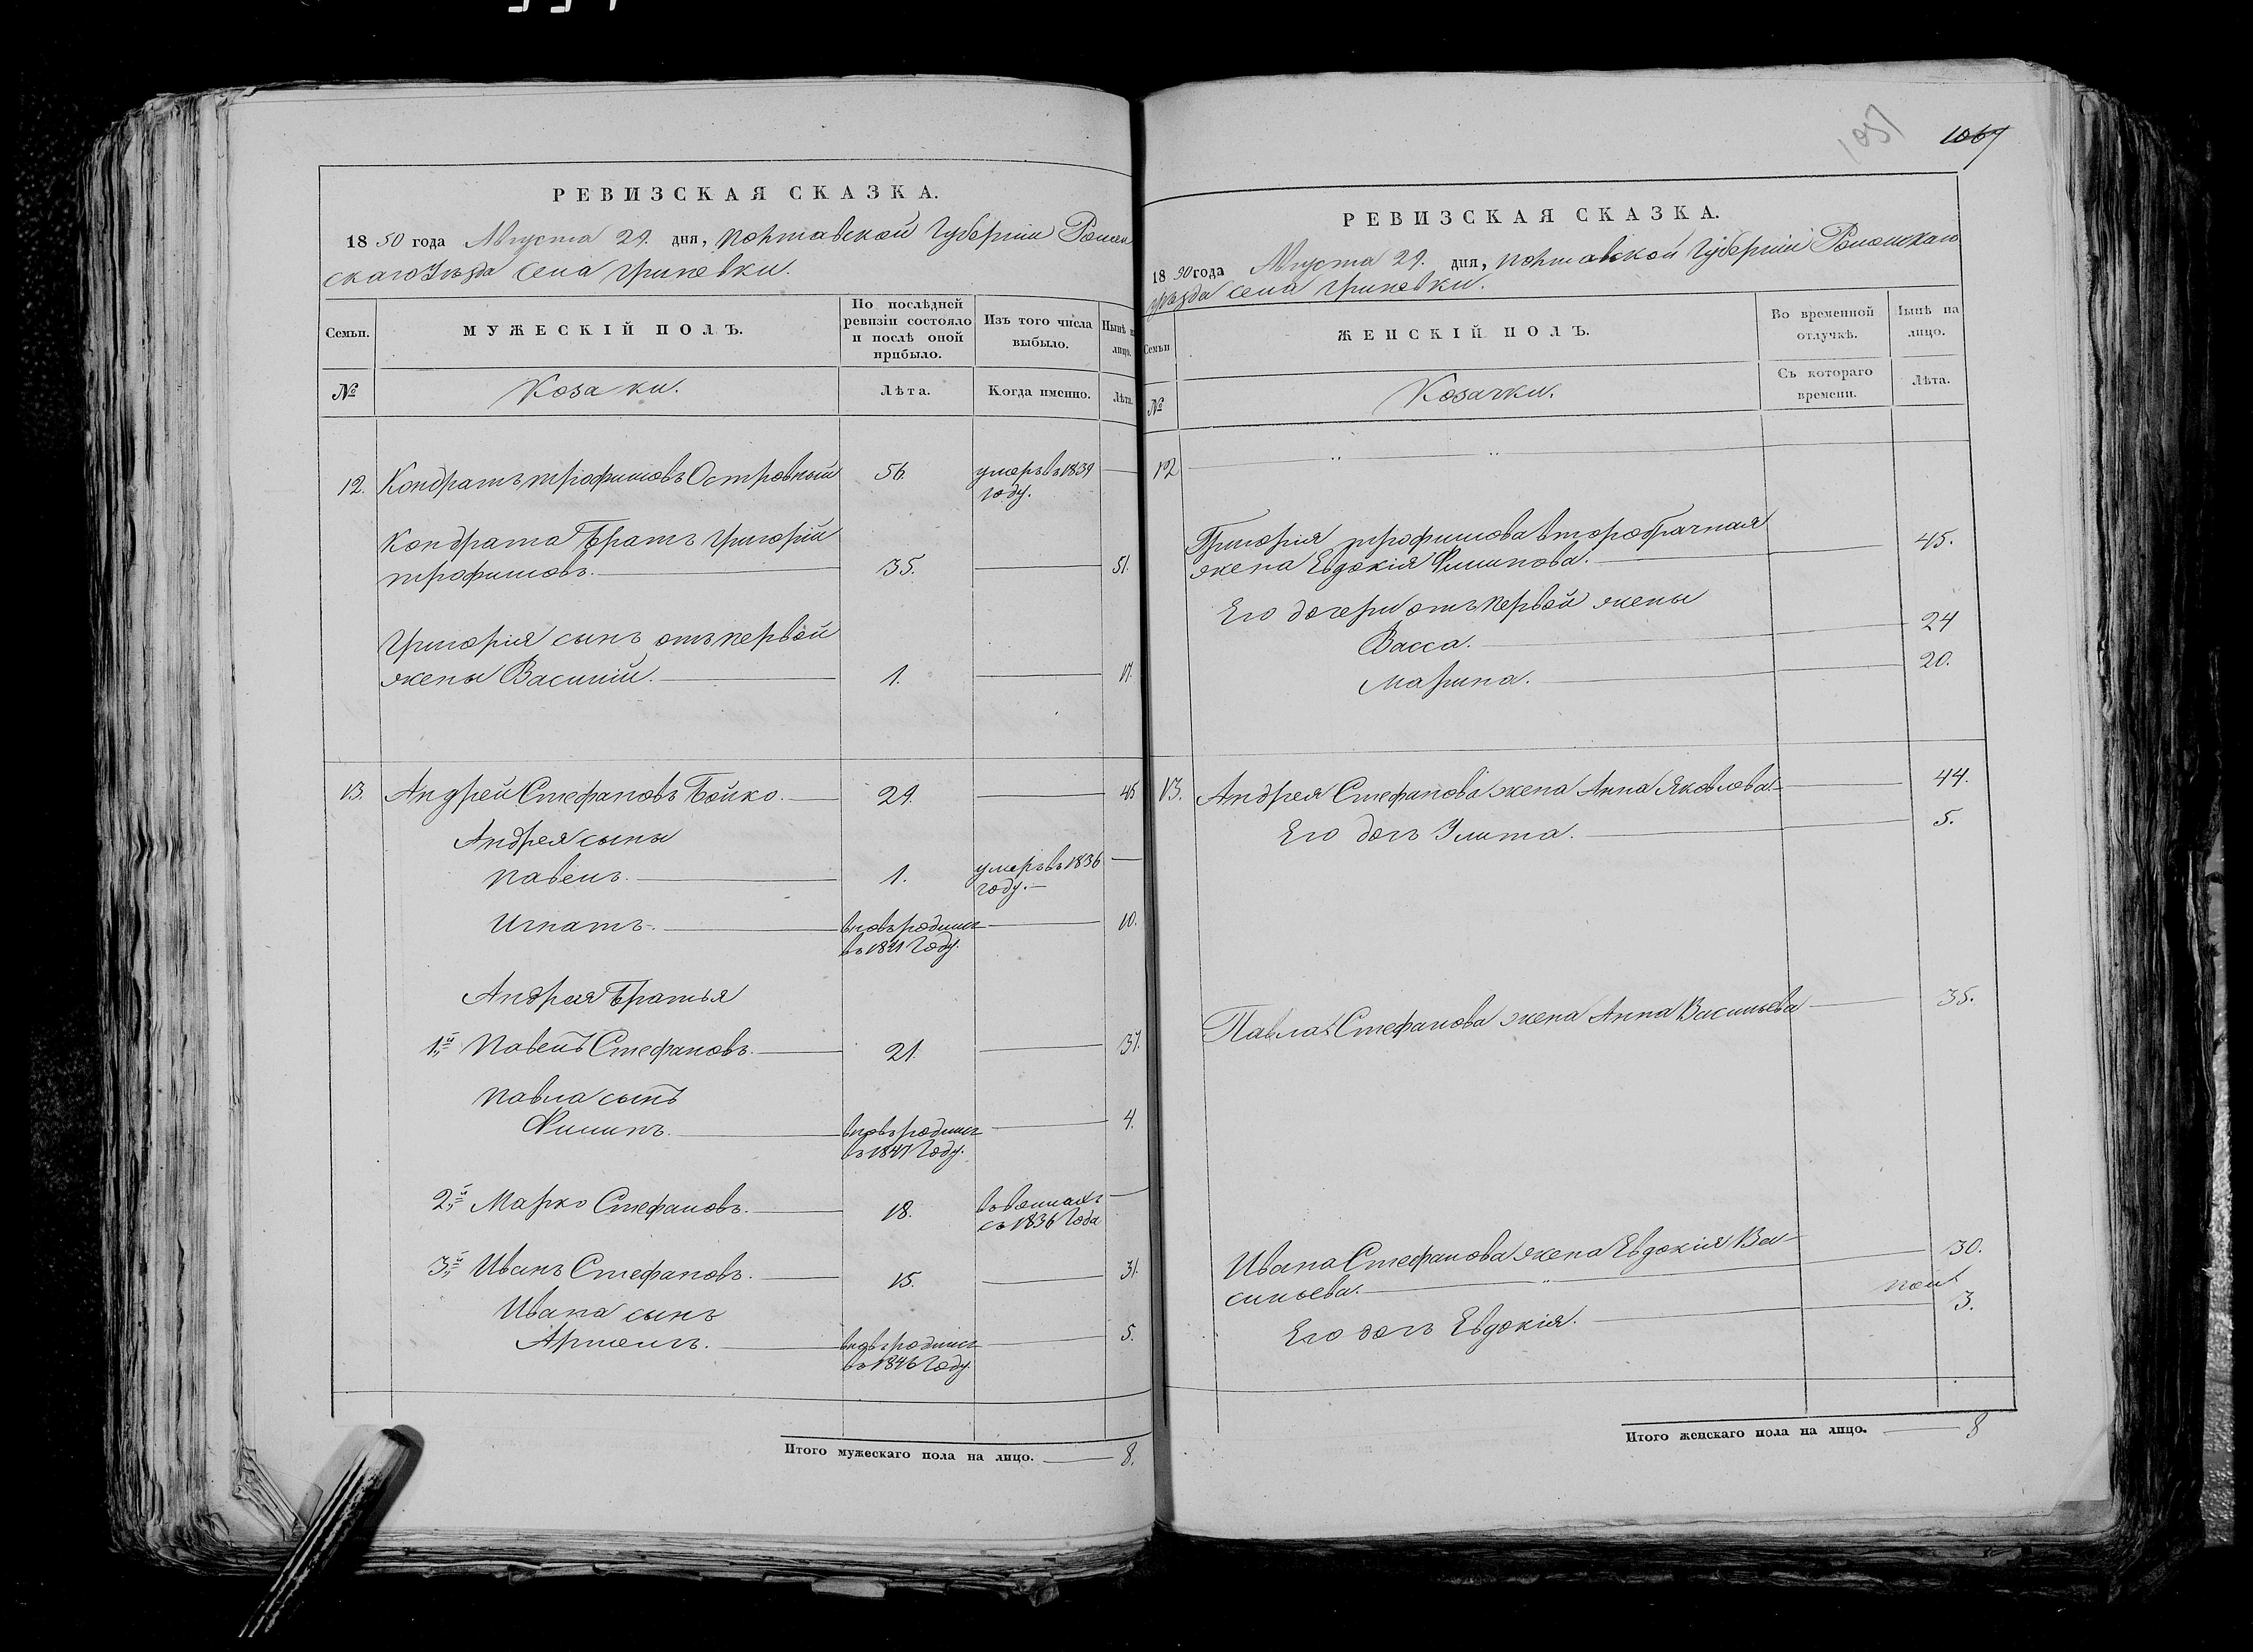 1051
1067
РЕВИЗСКАЯ СКАЗКА.
18 50 года Августа 29. дня, Полтавской Губерніи Ромен
скаго Уѣзда села Гриневки.
Семьи.
МУЖЕСКІЙ ПОЛЪ.
По послѣдней
ревизіи состояло
и послѣ оной
прибыло.
Изъ того числа
выбыло.
Нынѣ н
лицо.
№
Козаки.
Лѣта.
Когда именно.
Лѣта.
12. Кондратъ Трофимовъ Островный 56. умеръ въ 1839
году.
Кондрата Братъ Григорій
Трофимовъ. 35. 51.
Григорія сынъ отъ первой
жены Василій. 1. 17.
13. Андрей Стефановъ Бойко. 29. 45
Андрея сыны
Павелъ. 1. умеръ въ 1836
году.
Игнатъ. вновь родилс 10.
въ 1841 году.
Андрея Братья
1й Павелъ Стефановъ. 21. 37.
Павла сынъ
Филипъ. вновь родилс 4.
въ 1847 году.
2й Марко Стефановъ. 18.
съ 1836 года
3й Иванъ Стефановъ. 15. 31.
Ивана сынъ
Артемъ. вновь родилс 5.
въ 1846 году.
Итого мужескаго пола на лицо. 8.
РЕВИЗСКАЯ СКАЗКА.
18 50 года Августа 29. дня, Полтавской Губерніи Роменскаго
уѣзда села Гриневки.
Семьи
ЖЕНСКІЙ ПОЛЪ.
Во временной
отлучкѣ.
Нынѣ на
лицо.
№
Козачки.
Съ котораго
времени.
Лѣта.
12
Григорія Трофимова второбрачная
жена Евдокія Филипова. 45.
Его дочери отъ первой жены
Васса. 24
Марина. 20.
13. Андрея Стефанова жена Анна Яковлева. 44.
Его дочь Улита. 5.
Павла Стефанова жена Анна Васильева 35.
Ивана Стефанова жена Евдокія Ва-
сильева. 30.
Его дочь Евдокія. 3.
Итого женскаго пола на лицо. 8